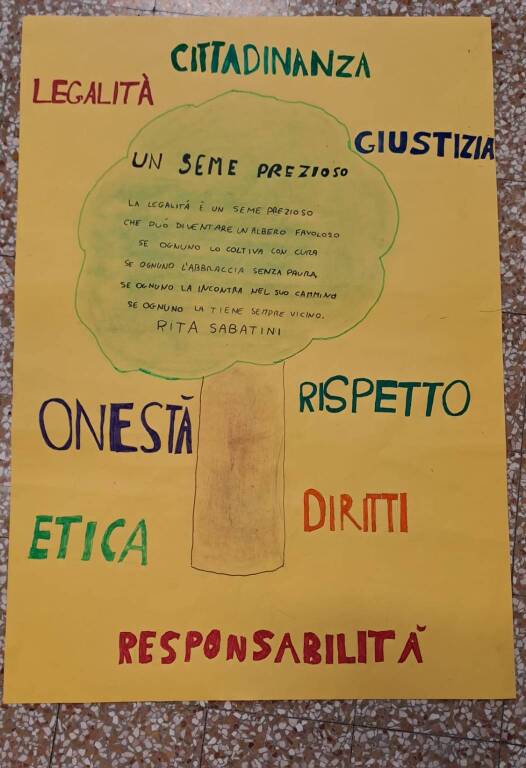 CITTADINANZA
LEGALITÀ
GIUSTIZIA
UN SEME PREZIOSO
LA LEGALITÀ È UN SEME PREZIOSO
CHE PUÒ DIVENTARE UN ALBERO FAVOLOSO
SE OGNUNO LO COLTIVA CON CURA
SE OGNUNO L'ABBRACCIA SENZA PAURA,
SE OGNUNO LA INCONTRA NEL SUO CAMMINO
SE OGNUNO LA TIENE SEMPRE VICINO.
RITA SABATINI
RISPETTO
ONESTÀ
DIRITTI
ETICA
RESPONSABILITÀ